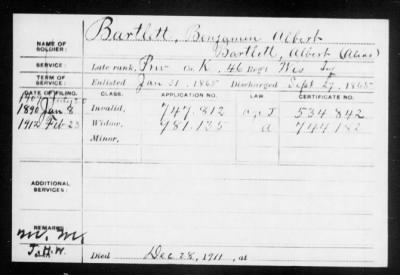 NAME OF SOLDIER:
Bartlett, Benjamin Albert
Bartlett, Albert (Alias)
SERVICE:
Late rank, Priv Co. K, 46 Reg't Wis Inf
TERM OF SERVICE:
Enlisted Jan 31, 1865 Discharged Sept 27, 1865
DATE OF FILING. CLASS. APPLICATION NO. LAW CERTIFICATE NO.
1907
1890 Jan 8 Invalid, 747.812 534.842
1912 Feb 23 Widow, 981.135 a 744.182
Minor,
ADDITIONAL SERVICES:
REMARKS:
Died Dec 28, 1911, at